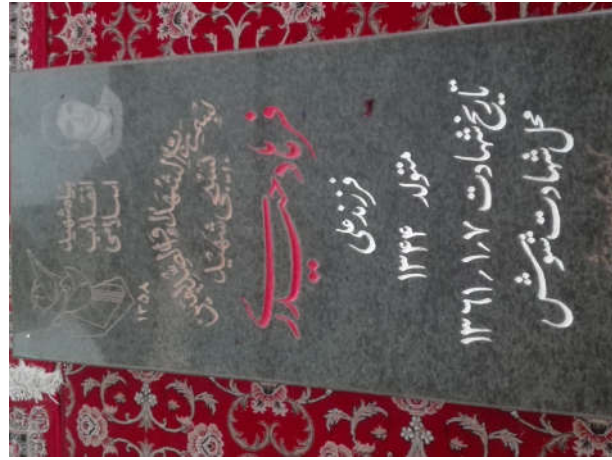 بنیاد شهید
انقلاب
اسلامی
۱۳۵۸
بسیجی شهید
فرهاد حیدری
فرزند علی
متولد ۱۳۴۴
تاریخ شهادت ۱۳۶۱/۱/۷
محل شهادت شوش